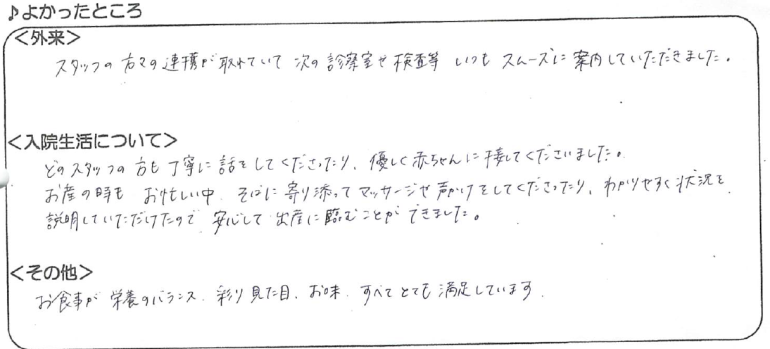 ♪よかったところ
<外来>
スタッフの方々の連携が取れていて 次の診察室や検査等 いつも スムーズに案内していただきました。
<入院生活について>
どのスタッフの方も丁寧に話をしてくださったり、優しく赤ちゃんに接してくださいました。
お産の時も お忙しい中、そばに寄り添って マッサージや声かけをしてくださったり、わかりやすく状況を
説明していただけたので 安心して 出産に臨むことが できました。
<その他>
お食事が 栄養のバランス、彩り 見た目、お味、すべて とても 満足しています。